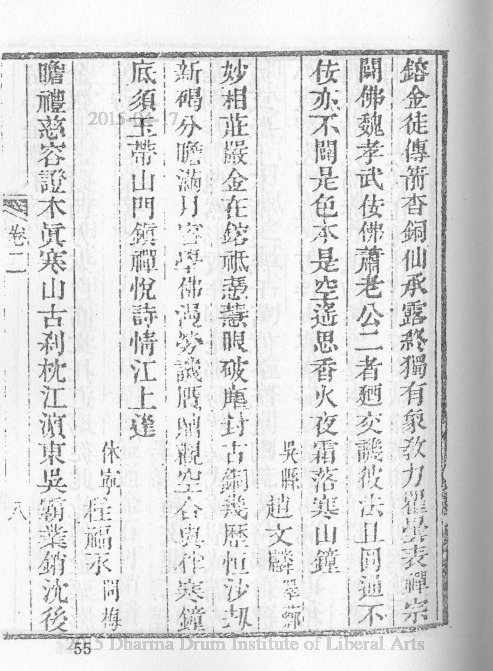 鎔金徒傳箭杳銅仙承露終獨有象教力瞿曇表禪宗
闢佛魏孝武佞佛蕭老公二者廼交譏彼法且圓通不
佞亦不闢是色本是空遙思香火夜霜落寒山鐘
吳縣趙文麟翠
妙相莊嚴金在鎔祇憑慧眼破塵封古銅幾歷恒沙刼
新碣分瞻滿月容學佛漫勞譏贋鼎觀空合與作寒鐘
底須玉帶山門鎮禪悅詩情江上逢
休寧程福永問梅
瞻禮慈容證木眞寒山古刹枕江濆東吳霸業銷沈後
卷二
八
55
2015-04-17
2015 Dharma Drum Institute of Liberal Arts